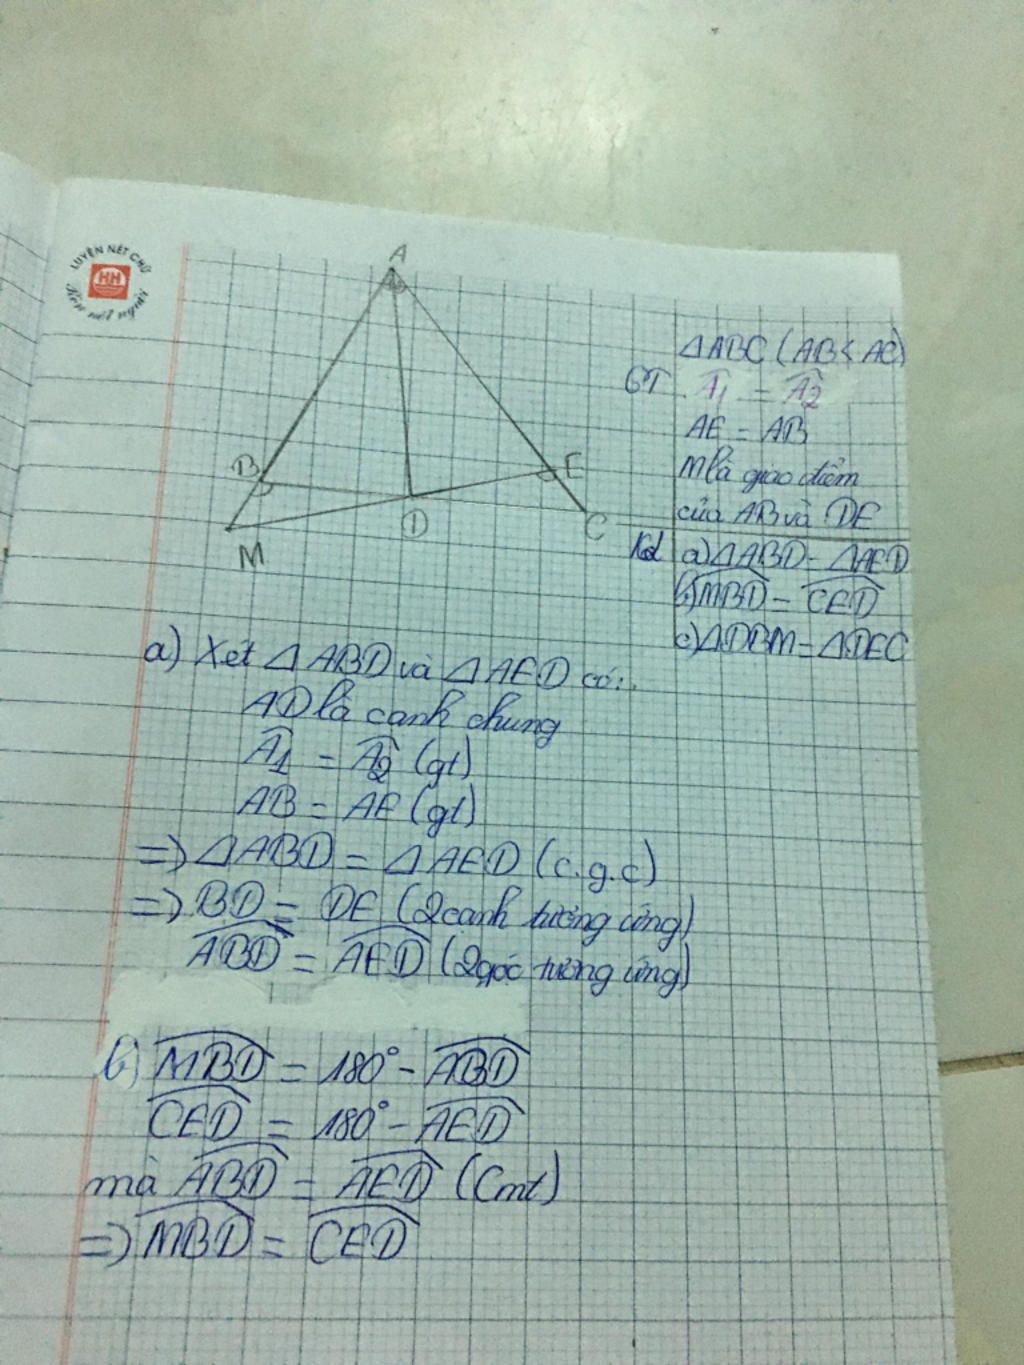 LUYỆN NÉT CHỮ
HH
Rèn nết người
A
B
E
D
C
M
△ABC (AB < AC)
GT
Â1 = Â2
AE = AB
M là giao điểm
của AB và DE
KL
a) △ABD = △AED
b) MBD = CED
c) △DBM = △DEC
a) Xét △ABD và △AED có:
AD là cạnh chung
Â1 = Â2 (gt)
AB = AE (gt)
=> △ABD = △AED (c.g.c)
=> BD = DE (2 cạnh tương ứng)
ABD = AED (2 góc tương ứng)
b) MBD = 180° - ABD
CED = 180° - AED
mà ABD = AED (Cmt)
=> MBD = CED